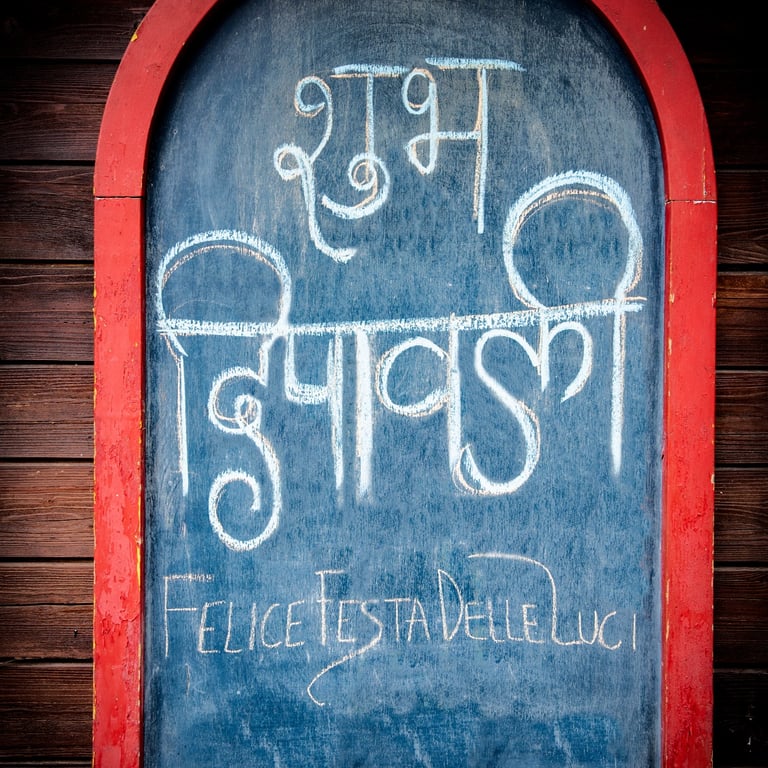 शुभ
दिपावली
FELICE FESTA DELLE LUCI